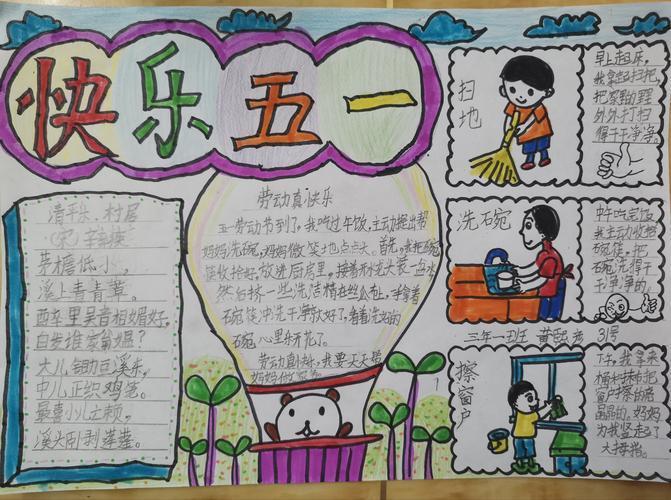 快乐五一
清平乐·村居
(宋)辛弃疾
茅檐低小,
溪上青青草。
醉里吴音相媚好,
白发谁家翁媪?
大儿锄豆溪东,
中儿正织鸡笼。
最喜小儿亡赖,
溪头卧剥莲蓬。
劳动真快乐
五一劳动节到了,我吃过午饭,主动提出帮
妈妈洗碗,妈妈微笑地点点头。首先,我把碗
筷收拾好,放进厨房里,接着
然后挤一些洗洁精在丝瓜布上,
碗筷冲洗干净放好了,看着洗好的
碗,心里乐开花了。
劳动真快乐,我要天天帮
妈妈做家务
扫地
早上起床,
我拿起扫把,
把家里的里里
外外打扫
得干干净净。
洗碗
中午吃完饭
我主动收拾
碗筷,把
碗洗得干
干净净的。
三年一班 黄 3号
擦窗户
下午,我拿来
桶和抹布把
窗户擦的亮
晶晶的,妈妈
为我竖起了
大拇指。